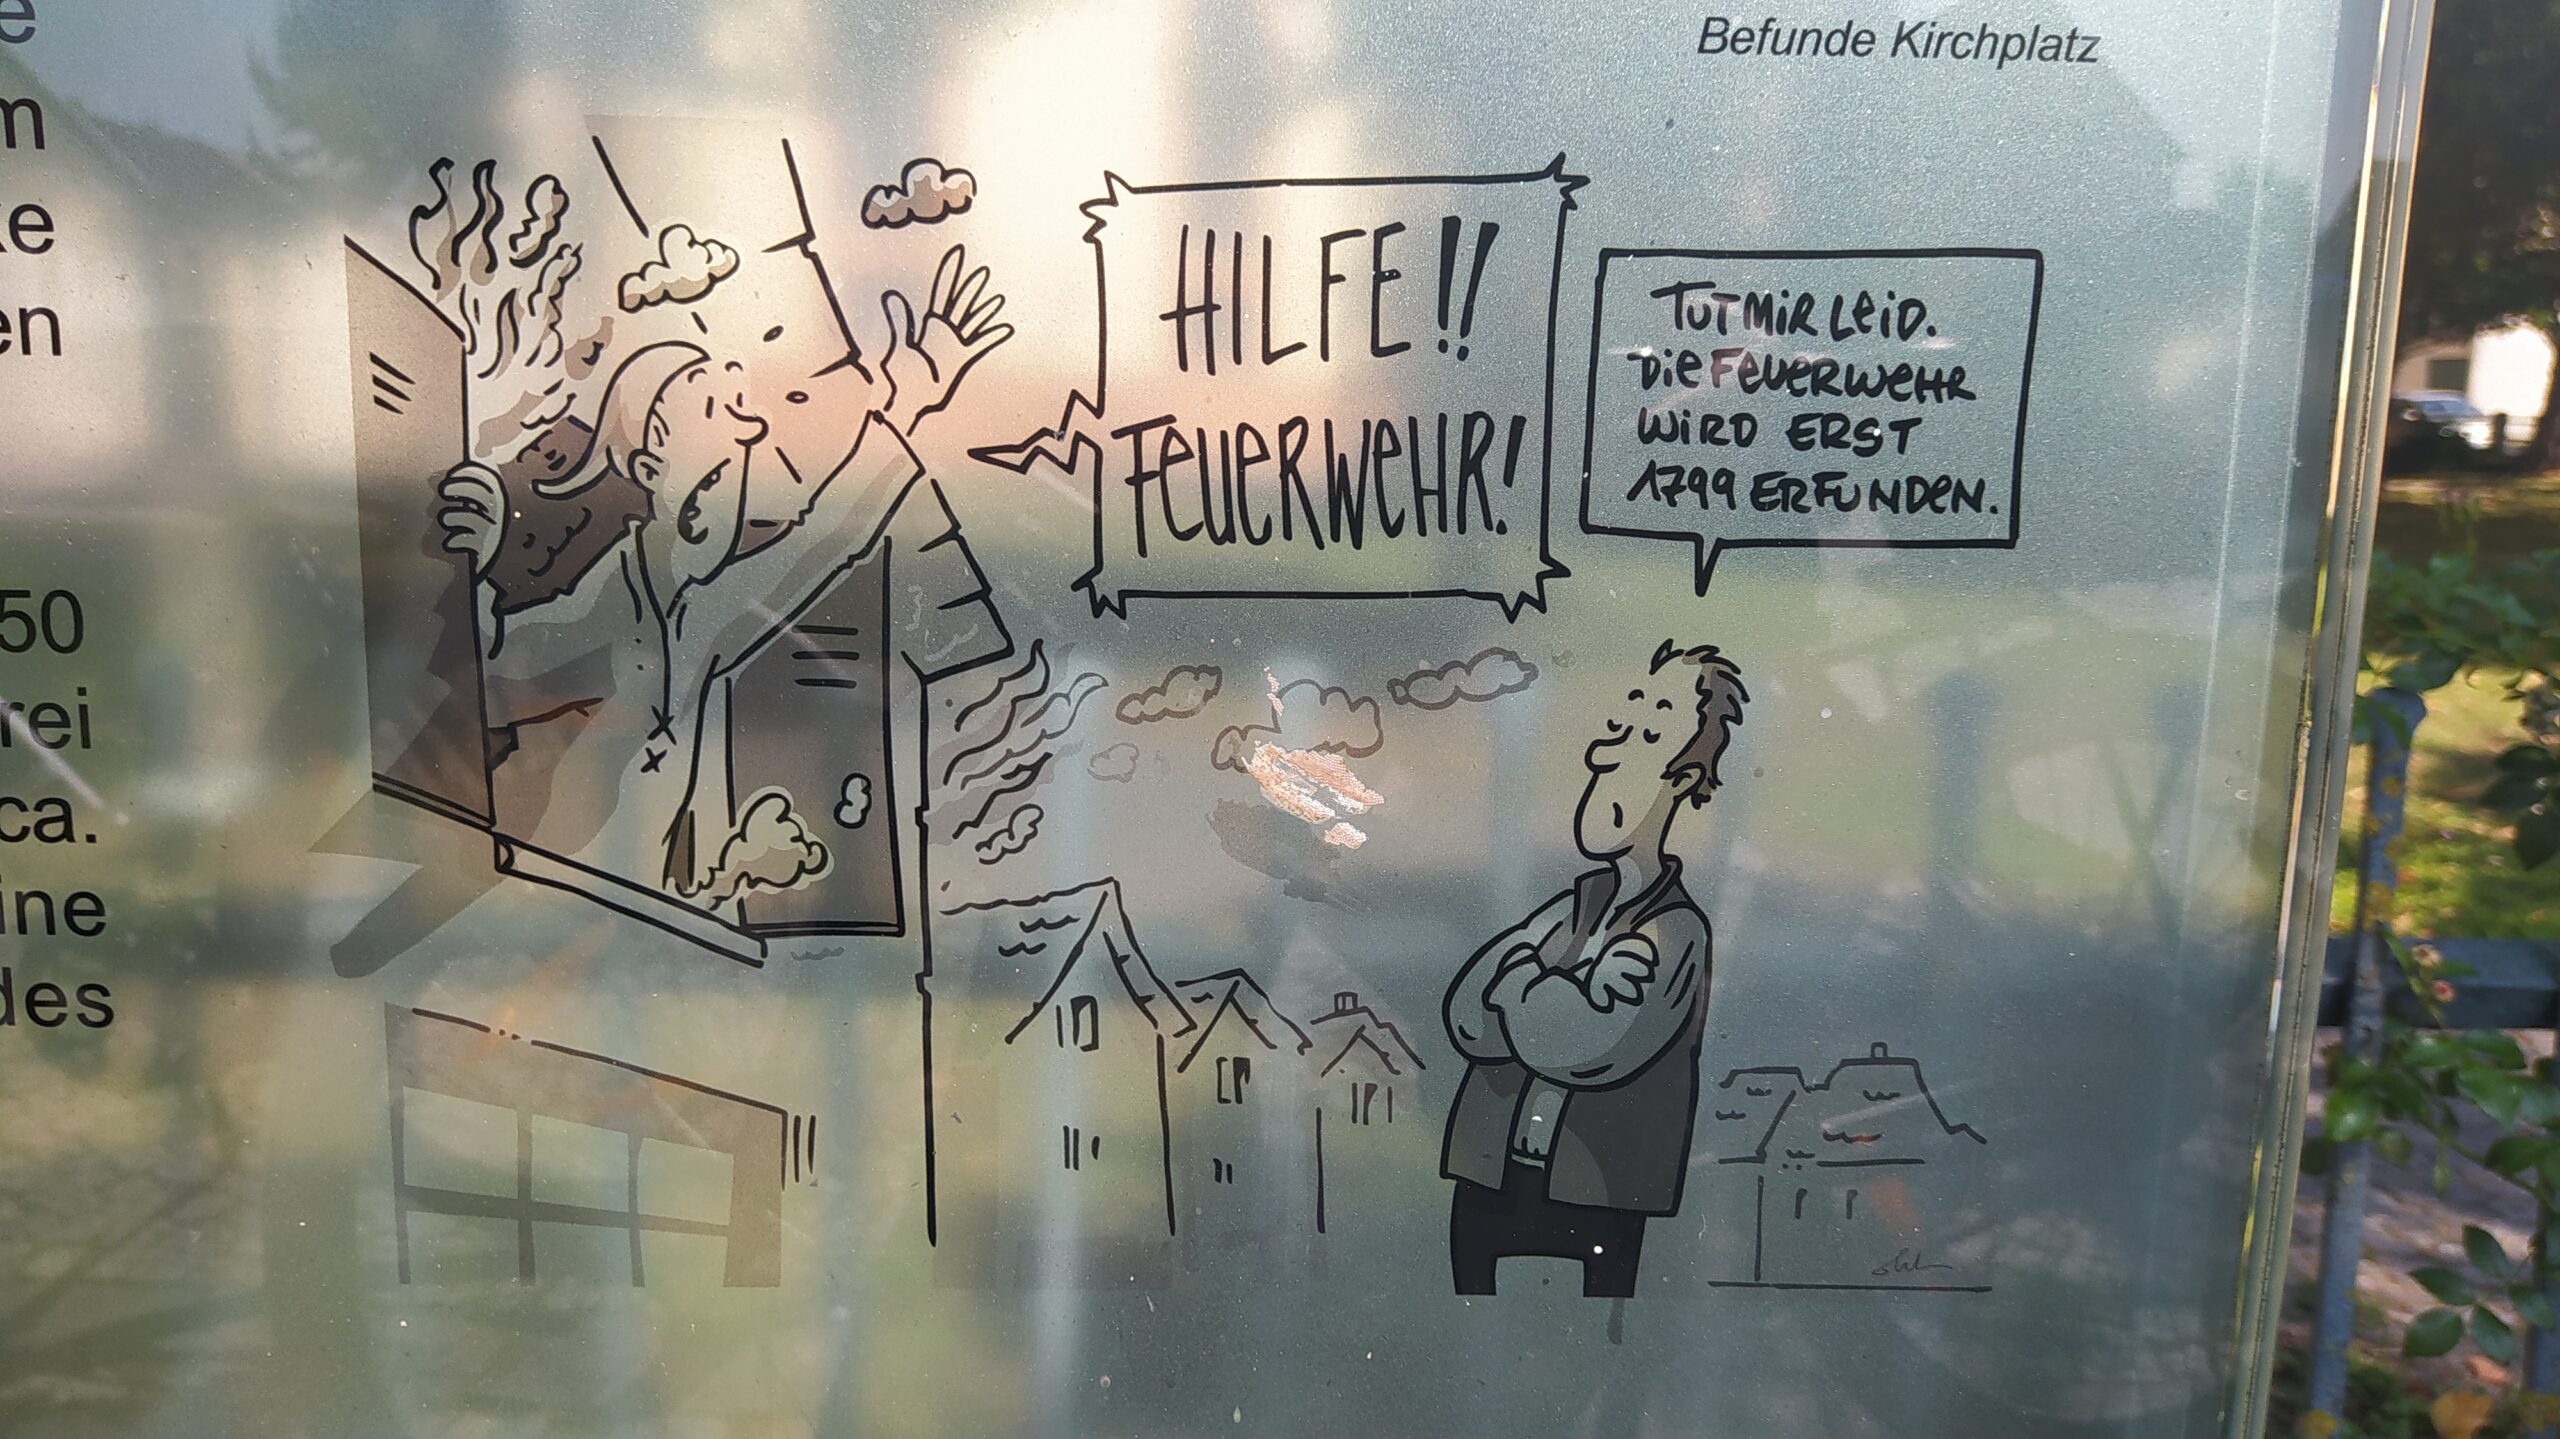 e
m
ke
en
50
rei
ca.
ine
des
Befunde Kirchplatz
HILFE!!
FEUERWEHR!
TUT MIR LEID.
DIE FEUERWEHR
WIRD ERST
1799 ERFUNDEN.